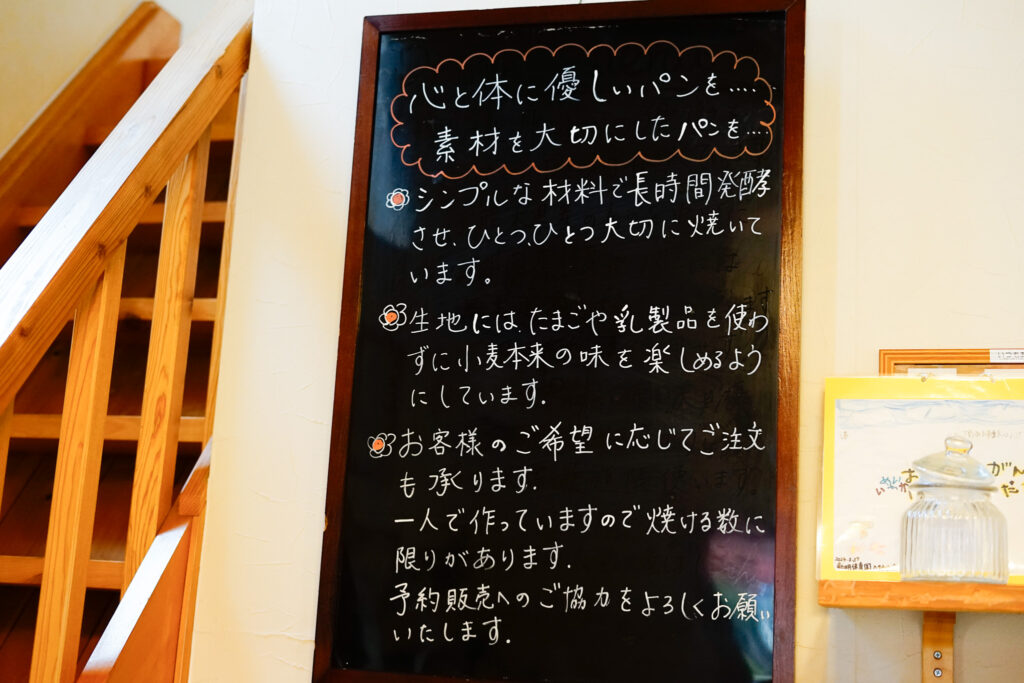 心と体に優しいパンを‥‥
素材を大切にしたパンを‥‥
シンプルな材料で長時間発酵
させ、ひとつ、ひとつ大切に焼いて
います。
生地には、たまごや乳製品を使わ
ずに小麦本来の味を楽しめるよう
にしています.
お客様のご希望に応じてご注文
も承ります.
一人で作っていますので焼ける数に
限りがあります.
予約販売へのご協力をよろしくお願い
いたします.